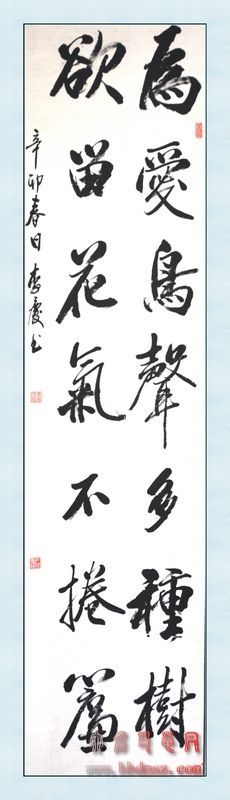 為愛鳥聲多種樹
欲留花氣不捲簾
辛卯春日李慶書
www.hhdmw.com